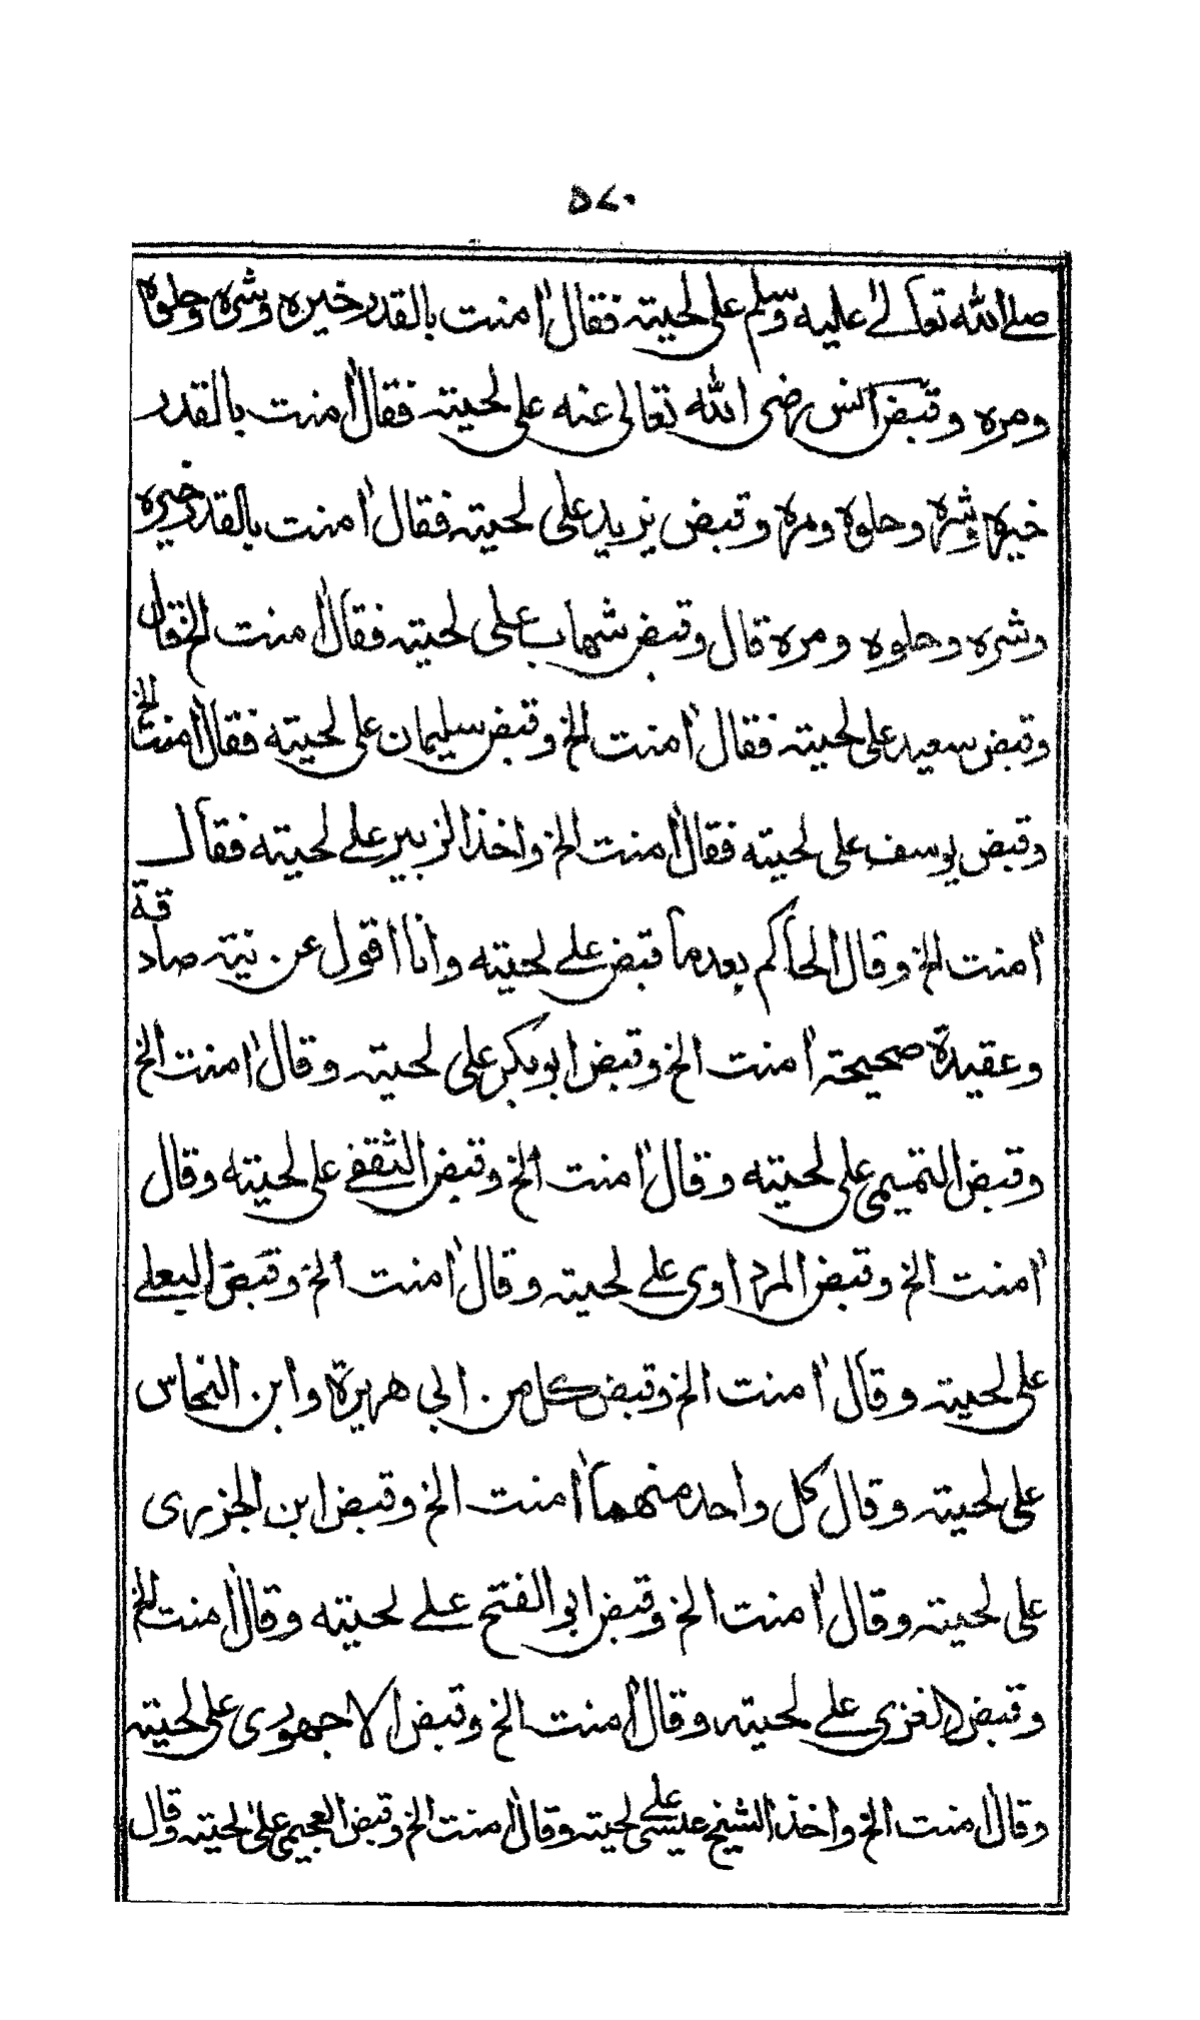 ٥٧٠
صلى الله تعالى عليه وسلم على لحيته فقال اٰمنت بالقدر خيره وشره وحلوه
ومره وقبض انس رضى الله تعالى عنه على لحيته فقال اٰمنت بالقدر
خيره وشره وحلوه ومره وقبض يزيد على لحيته فقال اٰمنت بالقدر خيره
وشره وحلوه ومره قال وقبض شهاب على لحيته فقال اٰمنت الخ قال
وقبض سعيد على لحيته فقال اٰمنت الخ وقبض سليمان على لحيته فقال اٰمنت الخ
وقبض يوسف على لحيته فقال اٰمنت الخ واخذ الزبير على لحيته فقال
اٰمنت الخ وقال الحاكم بعد ما قبض على لحيته وانا اقول عن نية صادقة
وعقيدة صحيحة اٰمنت الخ وقبض ابو بكر على لحيته وقال اٰمنت الخ
وقبض التميمى على لحيته وقال اٰمنت الخ وقبض الثقفى على لحيته وقال
اٰمنت الخ وقبض المرداوى على لحيته وقال اٰمنت الخ وقبض البعلى
على لحيته وقال اٰمنت الخ وقبض كل من ابى هريرة وابن النحاس
على لحيته وقال كل واحد منهما اٰمنت الخ وقبض ابن الجزرى
على لحيته وقال اٰمنت الخ وقبض ابو الفتح على لحيته وقال اٰمنت الخ
وقبض الغزى على لحيته وقال اٰمنت الخ وقبض الاجهورى على لحيته
وقال اٰمنت الخ واخذ الشيخ عيسى على لحيته وقال اٰمنت الخ وقبض العجيمى على لحيته وقال